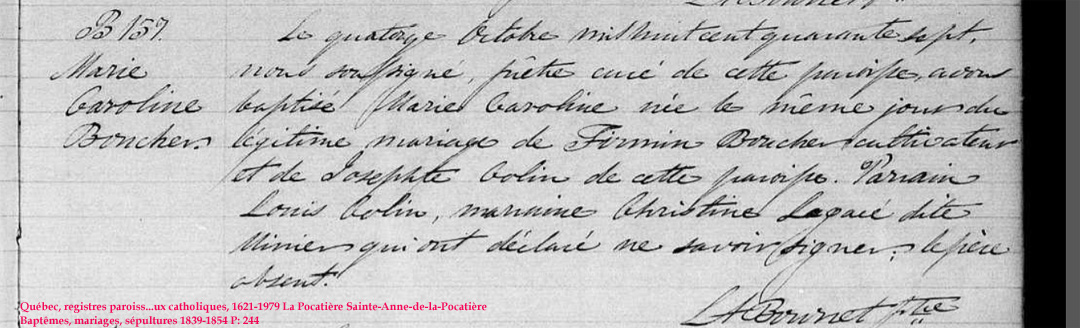 B 157.
Marie
Caroline
Boucher.
Le quatorze Octobre mil huit cent quarante sept,
nous soussigné, prêtre curé de cette paroisse, avons
baptisé Marie Caroline née le même jour du
légitime mariage de Firmin Boucher cultivateur
et de Josephte Colin de cette paroisse. Parrain
Louis Colin, marraine Christine Lagacé dite
Minier qui ont déclaré ne savoir signer; le père
absent.
Bournet Ptre
Québec, registres paroiss...ux catholiques, 1621-1979 La Pocatière Sainte-Anne-de-la-Pocatière
Baptêmes, mariages, sépultures 1839-1854 P: 244